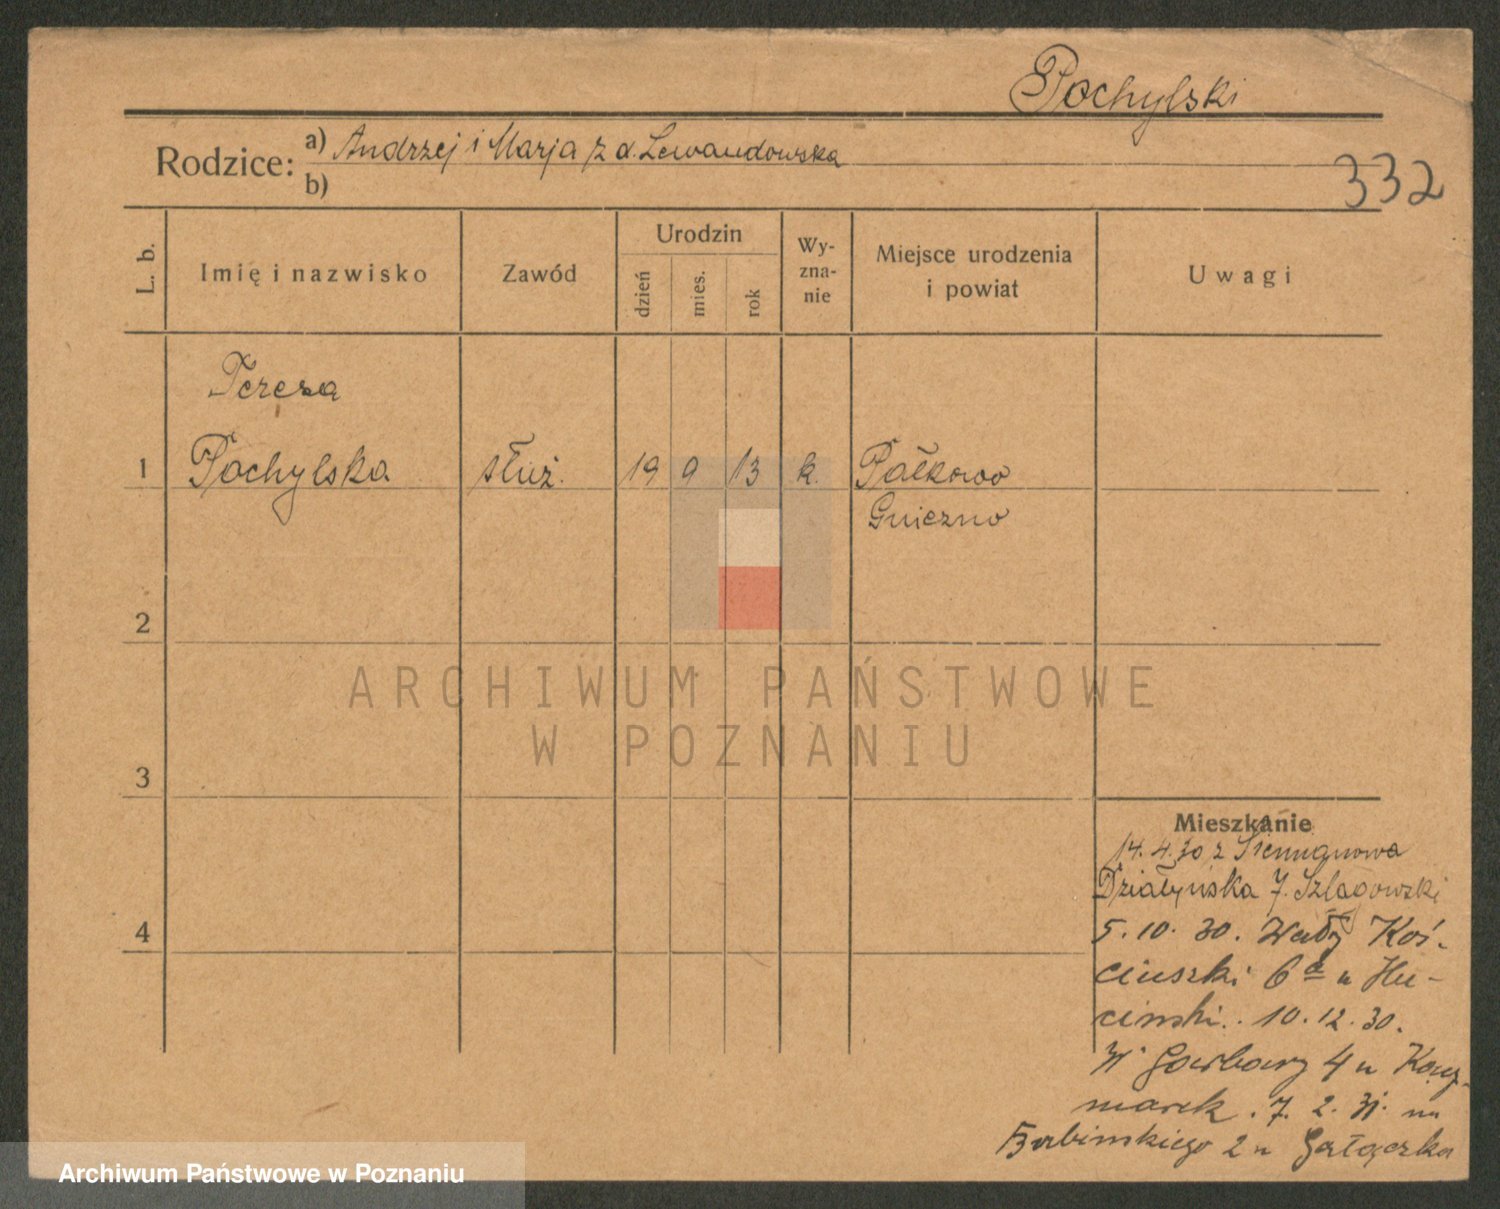 Pochylski
Rodzice:
a) Andrzej i Marja z d. Lewandowska
b)
332
L. b.
Imię i nazwisko
Zawód
Urodzin
dzień
mies.
rok
Wy-
zna-
nie
Miejsce urodzenia
i powiat
Uwagi
Teresa
1 Pochylska służ. 19 9 13 k. Pałkowo
Gniezno
2
3
4
ARCHIWUM PAŃSTWOWE
W POZNANIU
Mieszkanie
14. 4. 30 z
Działyńska 7. Szlagowski
5. 10. 30. Wały Koś-
ciuszki 6a u Hu-
cinski. 10. 12. 30.
Garbary 4 u Kacz-
marek. 7. 2. 31. na
2 u Gałączka
Archiwum Państwowe w Poznaniu